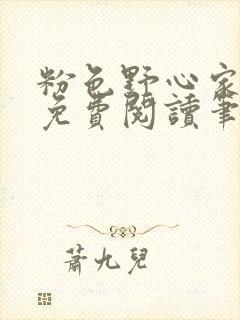 粉色野心家
免費閱讀筆
蕭九兒